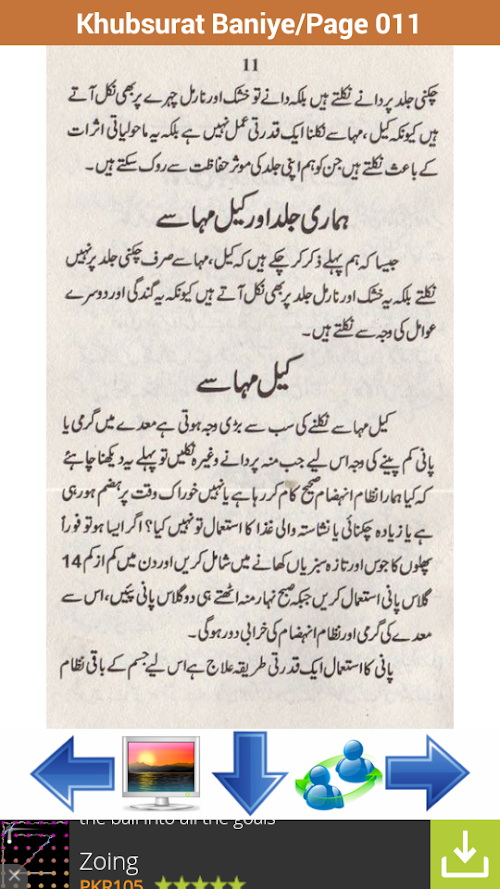 Khubsurat Baniye/Page 011
11
چکنی جلد پر دانے نکلتے ہیں بلکہ دانے تو خشک اور نارمل چہرے پر بھی نکل آتے
ہیں کیونکہ کیل ، مہاسے نکلنا ایک قدرتی عمل نہیں ہے بلکہ یہ ماحولیاتی اثرات
کے باعث نکلتے ہیں جن کو ہم اپنی جلد کی موثر حفاظت سے روک سکتے ہیں۔
ہماری جلد اور کیل مہاسے
جیسا کہ ہم پہلے ذکر کر چکے ہیں کہ کیل ، مہاسے صرف چکنی جلد پر نہیں
نکلتے بلکہ یہ خشک اور نارمل جلد پر بھی نکل آتے ہیں کیونکہ یہ گندگی اور دوسرے
عوامل کی وجہ سے نکلتے ہیں۔
کیل مہاسے
کیل مہاسے نکلنے کی سب سے بڑی وجہ ہوتی ہے معدے میں گرمی یا
پانی کم پینے کی وجہ اس لیے جب منہ پر دانے وغیرہ نکلیں تو پہلے یہ دیکھنا چاہئے
کہ کیا ہمارا نظام انہضام صحیح کام کر رہا ہے یا نہیں خوراک وقت پر ہضم ہو رہی
ہے یا زیادہ چکنائی یا نشاستہ والی غذا کا استعمال تو نہیں کیا؟ اگر ایسا ہو تو فوراً
پھلوں کا جوس اور تازہ سبزیاں کھانے میں شامل کریں اور دن میں کم از کم 14
گلاس پانی استعمال کریں جبکہ صبح نہار منہ اٹھتے ہی دو گلاس پانی پئیں، اس سے
معدے کی گرمی اور نظام انہضام کی خرابی دور ہو گی۔
پانی کا استعمال ایک قدرتی طریقہ علاج ہے اس لیے جسم کے باقی نظام
the ball into all the goals
Zoing
PKR105